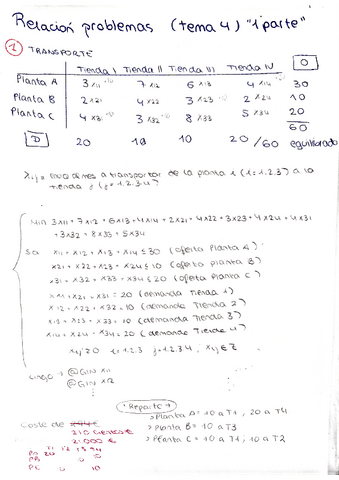 Relación problemas (tema 4) "1ª parte"
1 TRANSPORTE
Tienda I Tienda II Tienda III Tienda IV O
Planta A 3 x11 7 x12 6 x13 4 x14 30
Planta B 2 x21 4 x22 3 x23 2 x24 10
Planta C 4 x31 3 x32 8 x33 5 x34 20
60
D 20 10 10 20 /60 equilibrado
xij = a transportar de la planta i (i=1,2,3) a la
tienda j (j=1,2,3,4)
Min 3x11 + 7x12 + 6x13 + 4x14 + 2x21 + 4x22 + 3x23 + 2x24 + 4x31
+ 3x32 + 8x33 + 5x34
Sa x11 + x12 + x13 + x14 ≤ 30 (oferta Planta A)
x21 + x22 + x23 + x24 ≤ 10 (oferta planta B)
x31 + x32 + x33 + x34 ≤ 20 (oferta Planta C)
x11 + x21 + x31 = 20 (demanda Tienda 1)
x12 + x22 + x32 = 10 (demanda Tienda 2)
x13 + x23 + x33 = 10 (demanda Tienda 3)
x14 + x24 + x34 = 20 (demanda Tienda 4)
xij ≥ 0 i=1,2,3 j=1,2,3,4, xij ∈ Z
Lingo → @GIN x11
@GIN x12
Reparto
Coste de
210 cientos €
21000 €
→ Planta A = 10 a T1, 20 a T4
→ Planta B = 10 a T3
→ Planta C = 10 a T1, 10 a T2
T1 T2 T3 T4
PA 10 20
PB 10
PC 10 10